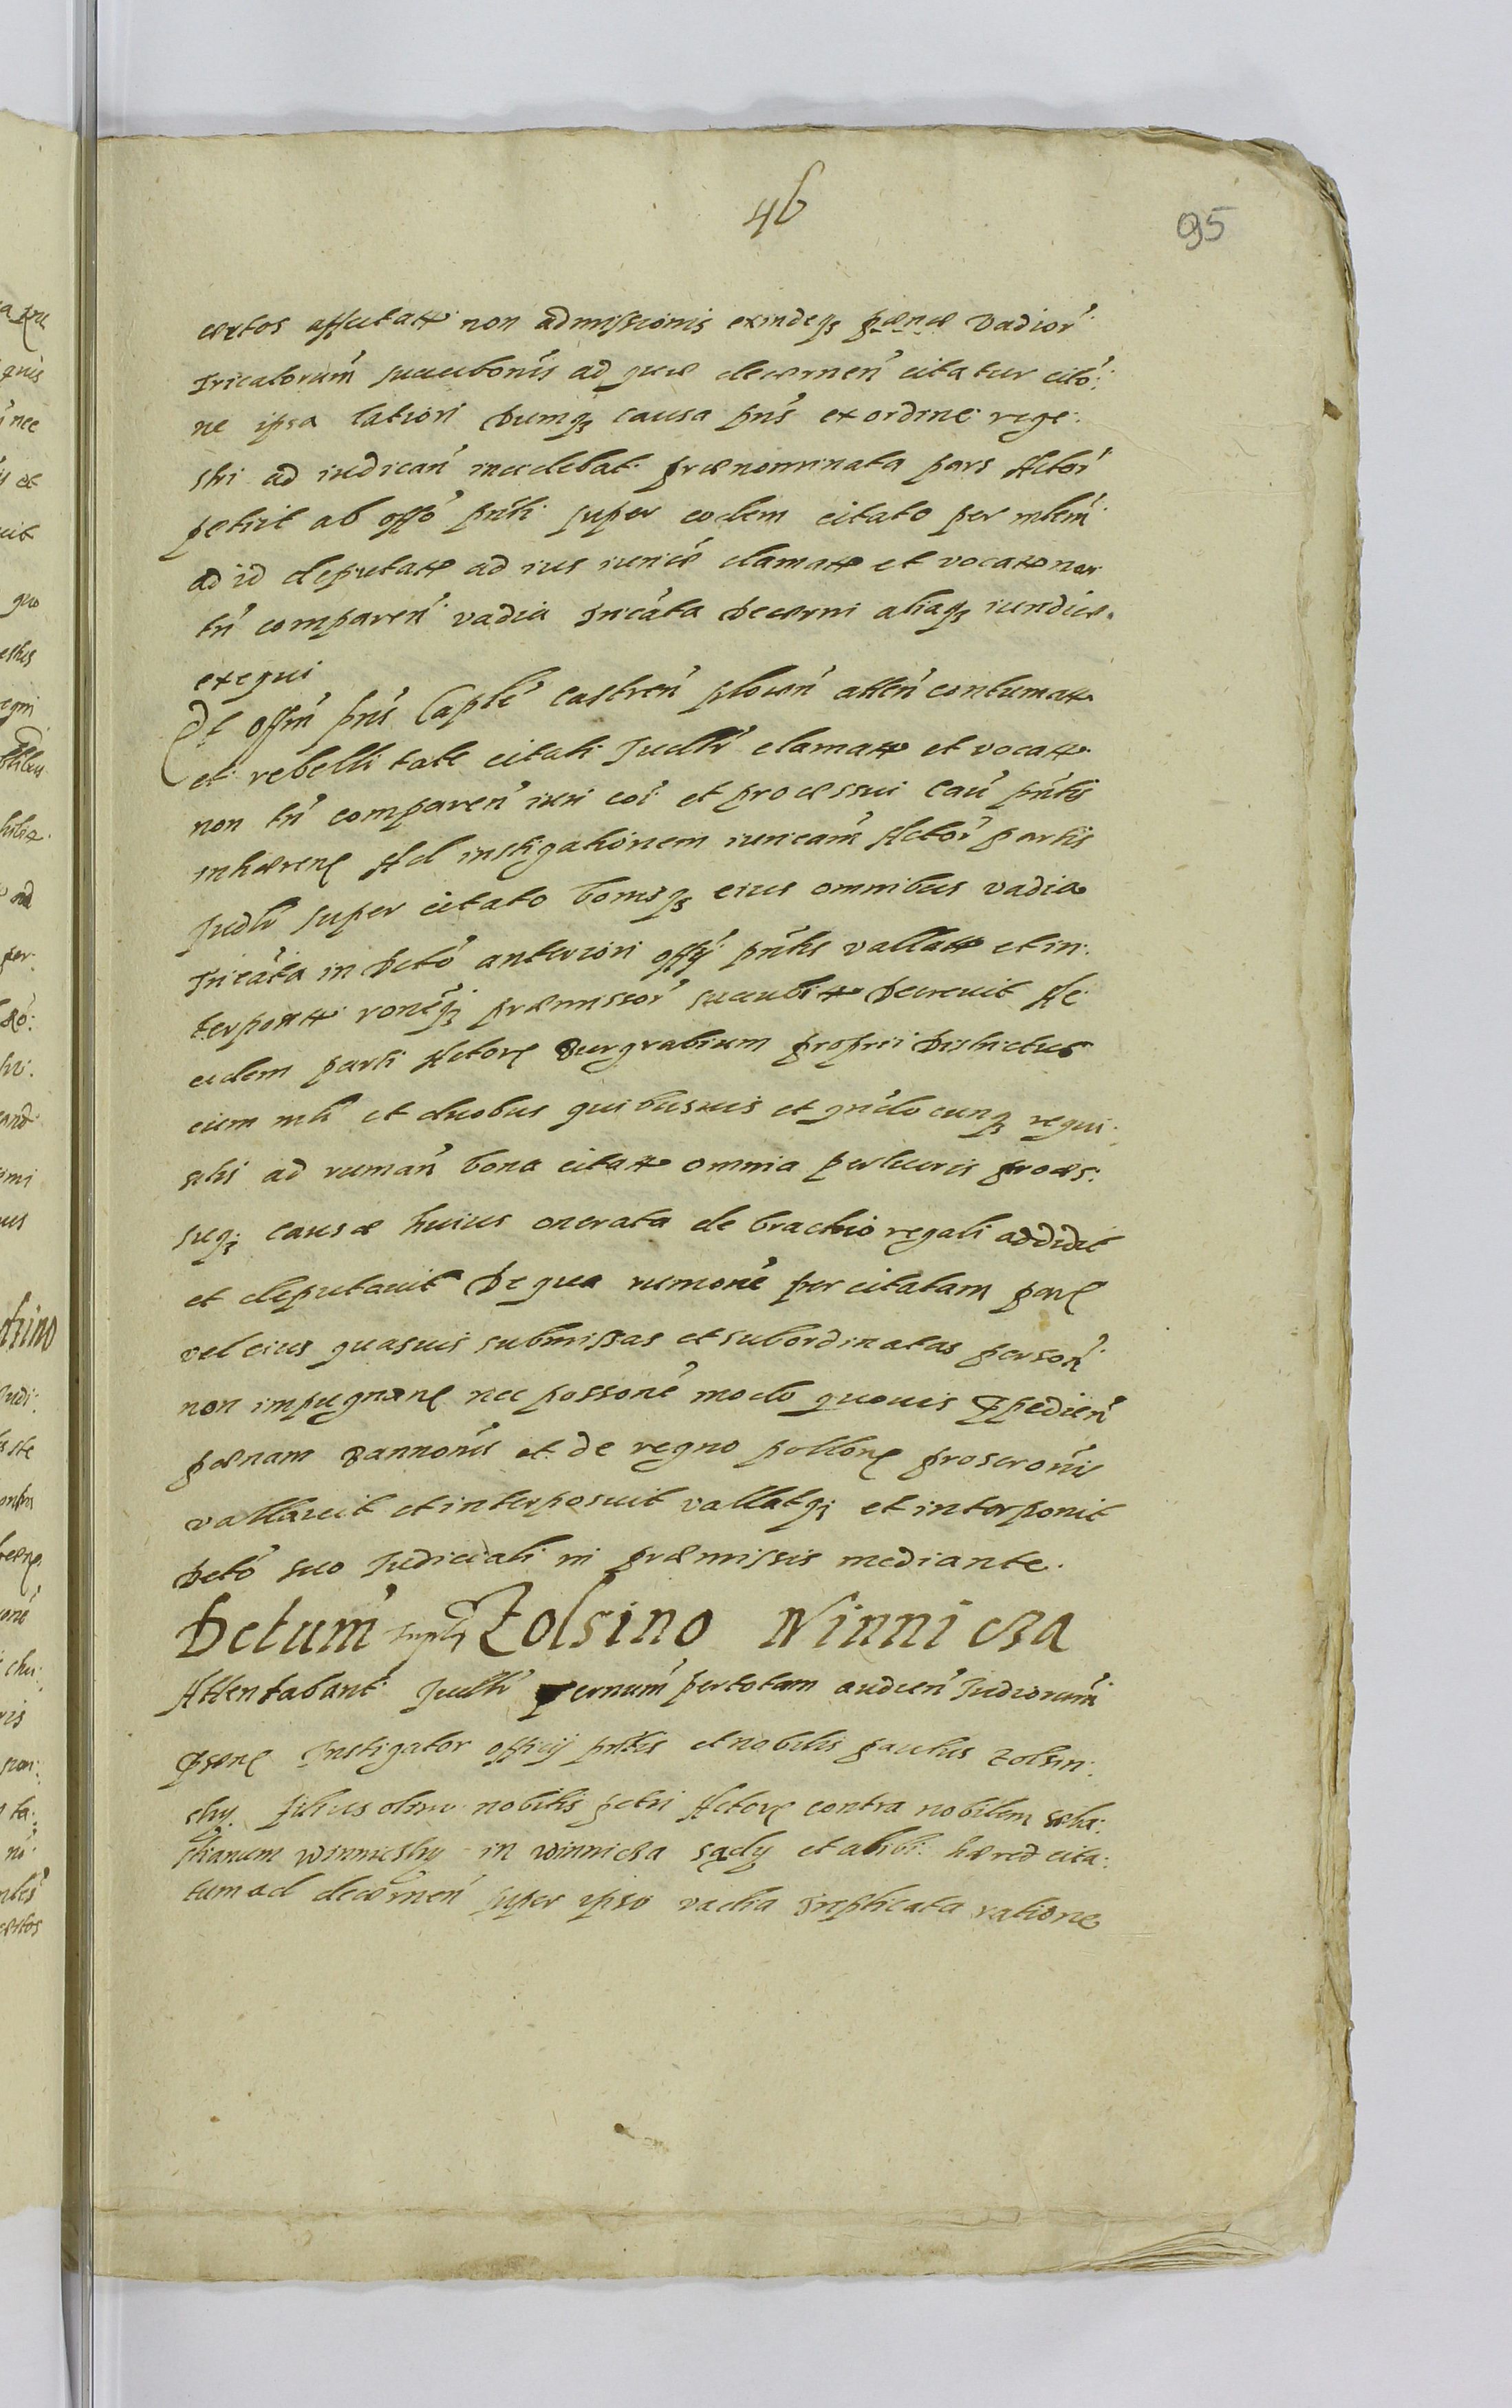 46
95
certos effectatae non admissionis exindeqз paenae vadior
Tricatorum succubonis ad quae decernen citatur cito:
ne ipsa latiori Dumqз causa pns ex ordine rege:
stri ad iudican incidebat praenominata pars Actor
petiit ab offo pnti super eodem citato per mlem
ad id deputatae ad ius iunice clamatae et vocatae non
tn comparen vadia tricata Decerni aliaqз iuridice
exequi
Et offm pns Caple Castren attén contumatae
et rebelli tate citati Judllr clamatae et vocatae
non tn comparen iuri coi et processui Cau pntis
inhaeren Ad instigationem Actor partis
Judllr super citato bonisqз eius omnibus vadia
tricata in Decto anteriori offy pntis vallatae et in:
terposit ronéqз praemissor succubit Decrevit Ac
eidem parti Actor Burgrabium proprii Districtus
cum mli et duobus quibusvis et qndocunqз requi:
sitis ad ruman bona citatae omnia per lucris proces:
suqз causae huius onerata de brachio regali addidit
et deputavit De qua rumone per citatam par
vel eius quasvis submissas et subordinatas person
non impugnan nec possone modo quovis impedien
paenam bannonis et de regno pollon proscronis
vallavit et interposuit vallatqз et interponit
Decto suo Judiciali in praemissis mediante.
Dctum Tupl Zolsino Winni cza
Attentabant Judllr ternum per totam audien Judiorum
Instigator officij pntis et nobilis paulus Zolsin:
sky filius olim nobilis petri Actor contra nobilem seba:
stianum Winnicsky in Winnicza sądy et alibi haered cita:
tum ad decernen super ipso vadia triplicata ratione